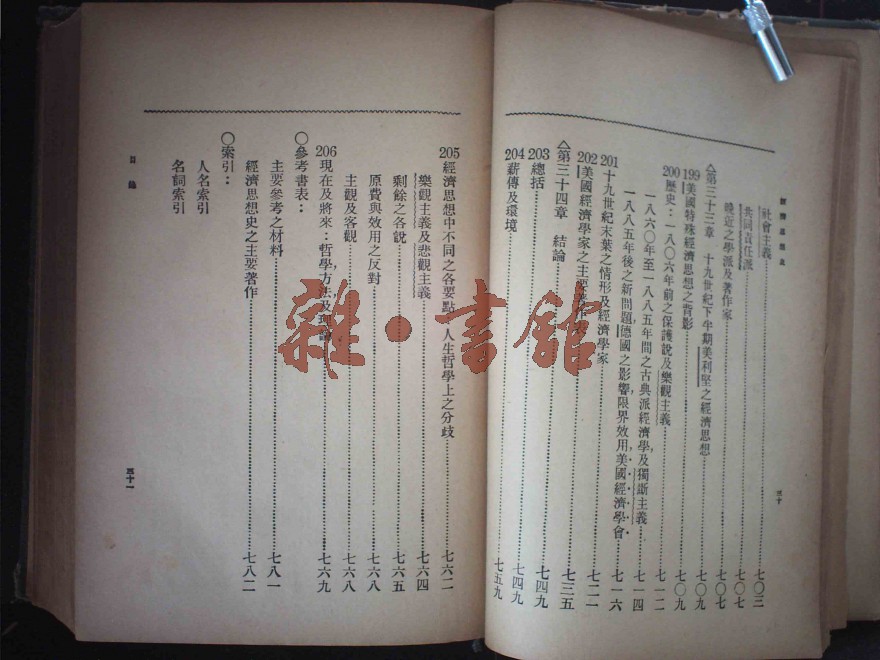 經濟思想史
社會主義……七〇三
共同責任派……七〇七
晚近之學派及著作家……七〇七
△第三十三章 十九世紀下半期美利堅之經濟思想……七〇九
199 美國特殊經濟思想之背影……七〇九
200 歷史：一八〇六年前之保護說及樂觀主義……七一二
一八六〇年至一八八五年間之古典派經濟學，及獨斷主義……七一四
一八八五年後之新問題，德國之影響，限界效用，美國經濟學會……七一六
201 十九世紀末葉之情形及經濟學家
202 美國經濟學家之主要著作……七二一
△第三十四章 結論……七三五
203 總括……七四九
204 薪傳及環境……七五九
三十
205 經濟思想中不同之各要點：人生哲學上之分歧……七六二
樂觀主義及悲觀主義……七六四
剩餘之各說……七六五
原費與效用之反對……七六八
主觀及客觀……七六八
206 現在及將來：哲學，方法及理論……七六九
〇參考書表：
主要參考之材料……七八一
經濟思想史之主要著作……七八二
〇索引：
人名索引
名詞索引
目錄
三十一
雜·書館